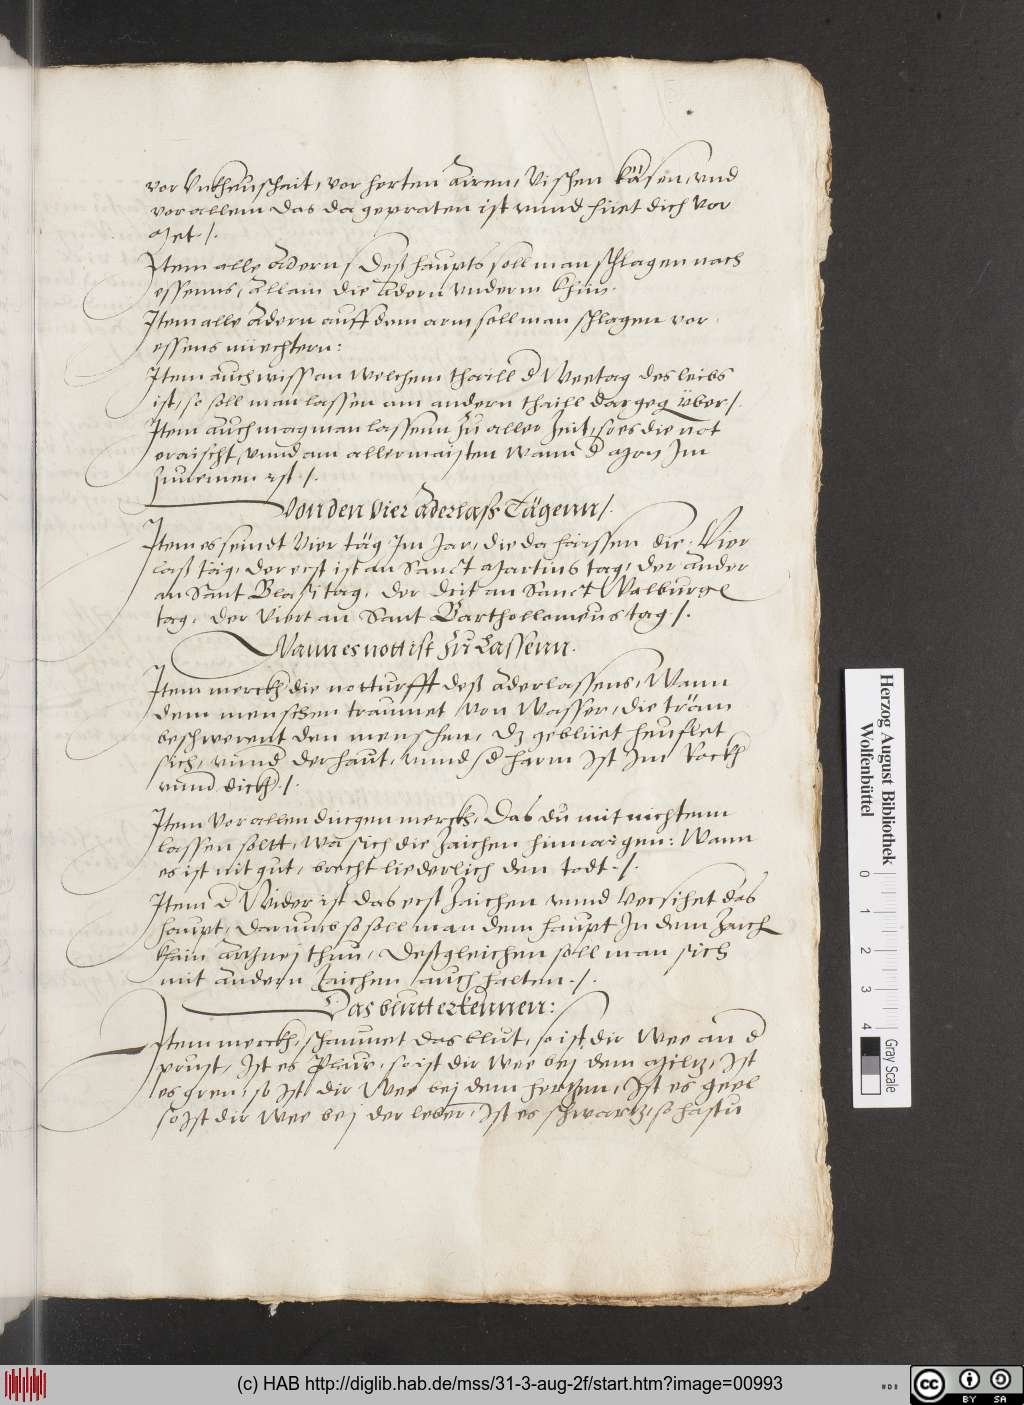 vor Unkheuschait, vor herten Airen, Vischen käsen, vnd
vor allem das da gepraten ist vnnd hüet dich vor
Met /.
Item alle Adern, deß haupts soll man schlagen nach
essenns, Allain die Adern vnderm Khin.
Item alle Adern auff dem arm soll man schlagen vor
essens niechtern:
Item auch wiss an welchem thaill d Weetag des leibs
ist, so soll man lassen am andern thaill dargeg Über /.
Item auch mag man lassenn Zu aller Zeit, so es die not
eraischt, vnnd am allermaisten wann d Mon Im
Zunemen ist /.
Von den Vier Aderlaß Tägenn /.
Item es seindt Vier täg Im Jar, die da haissen die Vier
laß täg, der erst ist an Sanct Martins tag, der ander
an Sant Blasi tag, der drit an Sanct Walburge
tag, der Viert an Sant Barthollomeus tag /.
Wann es nott ist Zu Lassenn.
Item merckh die notturfft deß Aderlassens, Wann
dem menschen traumet, Von Wasser, die träm
beschwerent den menschen, dz geblüet heuffet
sich, vnnd der haut, vnnd d harm Ist Im Rockh
vnnd dickh /.
Item Vor allen dingen merckh, Das du mit nichtenn
lassen soltt, wa sich die Zaichen hinnaigen: Wann
es ist nit gut, brecht liederlich den todt /.
Item d Wider ist das erst Zaichen vnnd Versihet das
haupt, darumb so soll man dem haupt In dem Zaich
khain Artznej thun, Deßgleichen soll man sich
mit andern Zaichen auch halten /.
Das blutt erkennen:
Item merckh, schaumet das blut, so ist dir wee an d
prust, Ist es Plaw, so ist dir wee bej dem Miltz, Ist
es gren, so Ist dir Wee bej dem hertzen, Ist es geel
so Ist dir wee bej der leber, Ist es schwartz, so hastu
Herzog August Bibliothek
Wolfenbüttel
0 1 2 3 4
Gray Scale
(c) HAB http://diglib.hab.de/mss/31-3-aug-2f/start.htm?image=00993
cc BY SA